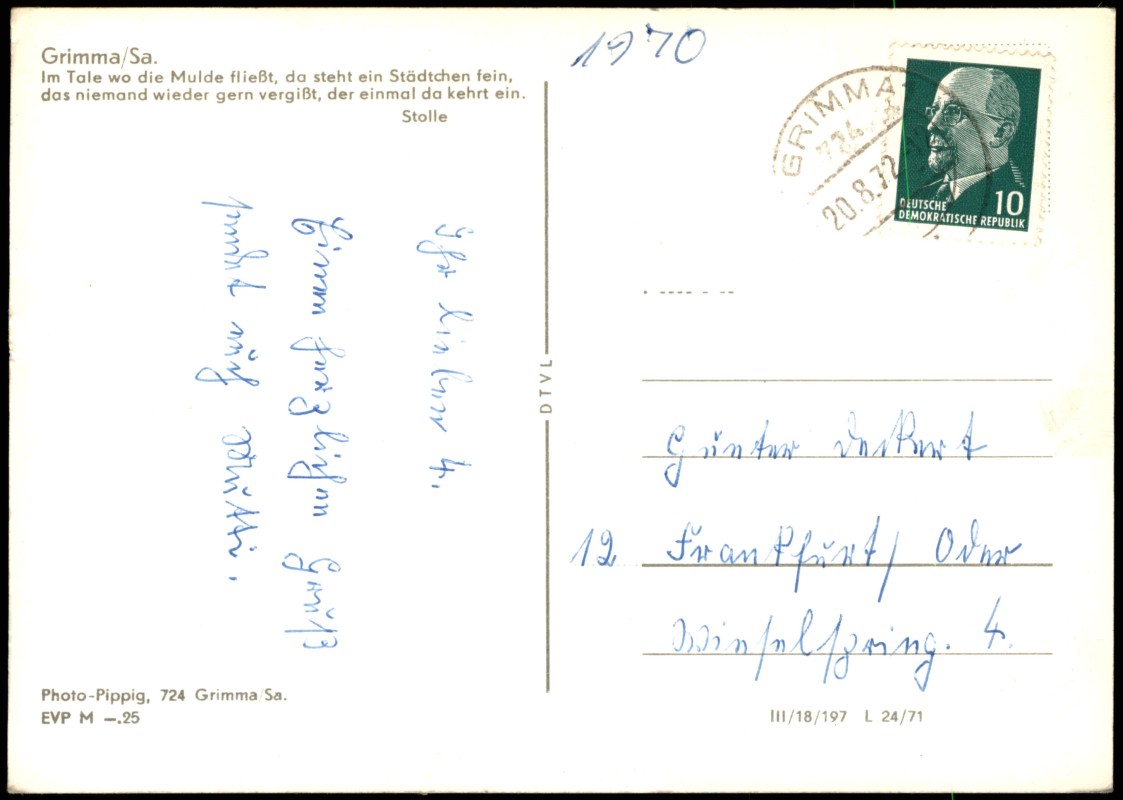 Grimma/Sa.
Im Tale wo die Mulde fließt, da steht ein Städtchen fein,
das niemand wieder gern vergißt, der einmal da kehrt ein.
Stolle
Ihr lieben 4.
Einen herzlichen Gruß
sendet euch Mutti.
DTVL
Photo-Pippig, 724 Grimma/Sa.
EVP M —.25
1970
GRIMMA
724
20.8.72
10
DEUTSCHE
DEMOKRATISCHE REPUBLIK
Günter Deckert
12 Frankfurt/ Oder
4.
III/18/197 L 24/71